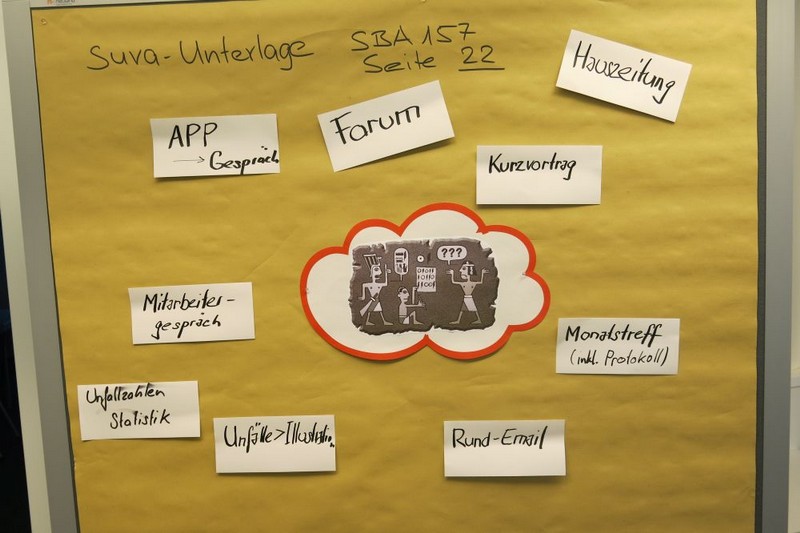 Suva-Unterlage SBA 157
Seite 22
Hauszeitung
APP
→ Gespräch
Forum
Kurzvortrag
???
Mitarbeiter-
gespräch
Monatstreff
(inkl. Protokoll)
Unfallzahlen
Statistik
Unfälle>Illustration
Rund-Email